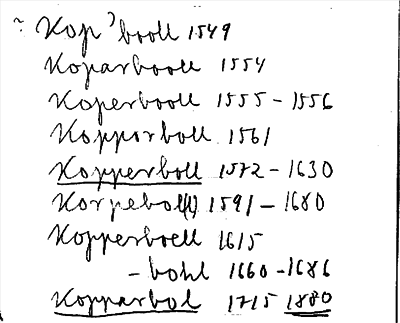 ~ Kop'booll 1549
Koparbooll 1554
Koperbooll 1555-1556
Kopporboll 1561
Kopperboll 1572-1630
Korpebol(l) 1591-1680
Kopperboell 1615
-bohl 1660-1686
Kopparbol 1715 1880